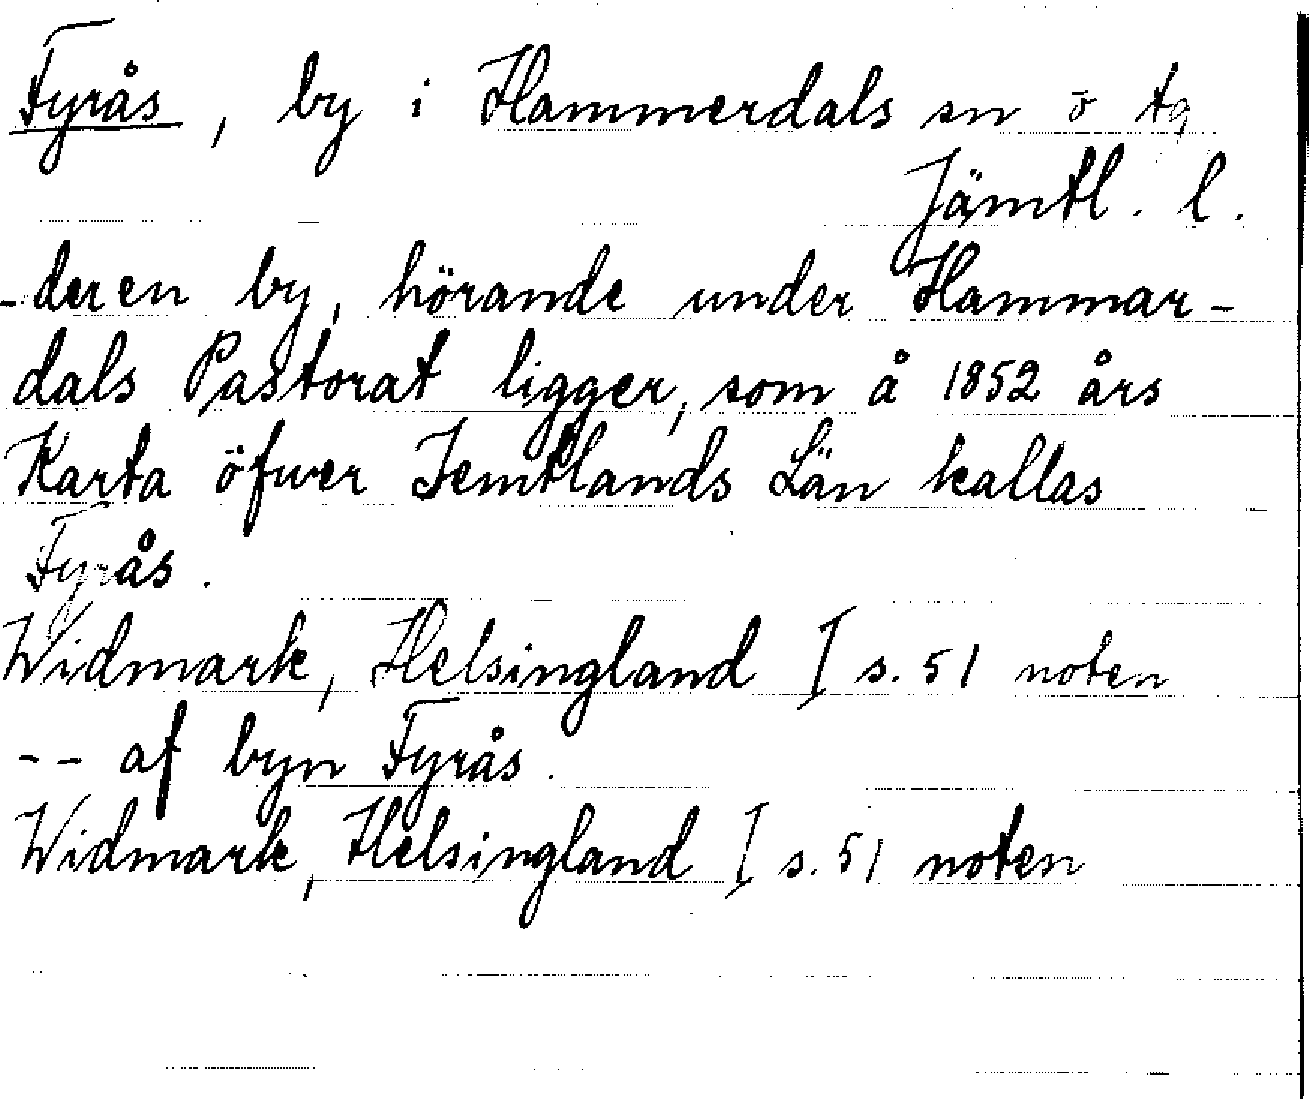 Fyrås, by i Hammerdals sn ö tg
Jämtl. l.
-der en by, hörande under Hammar-
dals Pastorat ligger, som å 1852 års
Karta öfwer Jemtlands Län kallas
Fyrås.
Widmark, Helsingland I s. 51 noten
-- af byn Fyrås.
Widmark, Helsingland I s. 51 noten